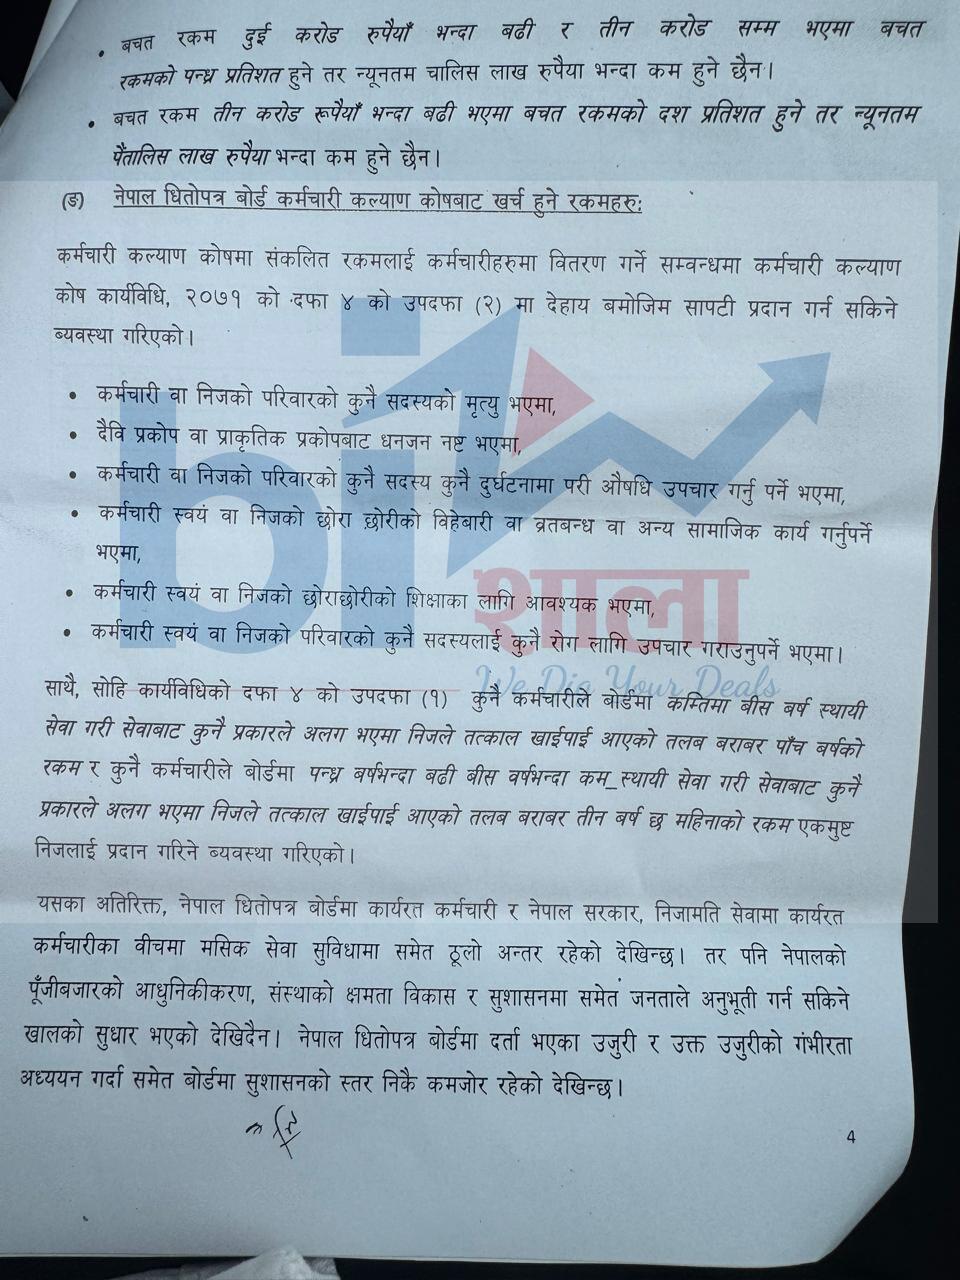 • बचत रकम दुई करोड रुपैयाँ भन्दा बढी र तीन करोड सम्म भएमा बचत
रकमको पन्ध्र प्रतिशत हुने तर न्यूनतम चालिस लाख रुपैया भन्दा कम हुने छैन।
• बचत रकम तीन करोड रूपैयाँ भन्दा बढी भएमा बचत रकमको दश प्रतिशत हुने तर न्यूनतम
पैंतालिस लाख रुपैया भन्दा कम हुने छैन।
(ङ) नेपाल धितोपत्र बोर्ड कर्मचारी कल्याण कोषबाट खर्च हुने रकमहरु:
कर्मचारी कल्याण कोषमा संकलित रकमलाई कर्मचारीहरुमा वितरण गर्ने सम्वन्धमा कर्मचारी कल्याण
कोष कार्यविधि, २०७१ को दफा ४ को उपदफा (२) मा देहाय बमोजिम सापटी प्रदान गर्न सकिने
ब्यवस्था गरिएको।
• कर्मचारी वा निजको परिवारको कुनै सदस्यको मृत्यु भएमा,
• दैवि प्रकोप वा प्राकृतिक प्रकोपबाट धनजन नष्ट भएमा,
• कर्मचारी वा निजको परिवारको कुनै सदस्य कुनै दुर्घटनामा परी औषधि उपचार गर्नु पर्ने भएमा,
• कर्मचारी स्वयं वा निजको छोरा छोरीको विहेबारी वा व्रतबन्ध वा अन्य सामाजिक कार्य गर्नुपर्ने
भएमा,
• कर्मचारी स्वयं वा निजको छोराछोरीको शिक्षाका लागि आवश्यक भएमा,
• कर्मचारी स्वयं वा निजको परिवारको कुनै सदस्यलाई कुनै रोग लागि उपचार गराउनुपर्ने भएमा।
bi शाला
We Dig Your Deals
साथै, सोहि कार्यविधिको दफा ४ को उपदफा (१) कुनै कर्मचारीले बोर्डमा कम्तिमा बीस बर्ष स्थायी
सेवा गरी सेवाबाट कुनै प्रकारले अलग भएमा निजले तत्काल खाईपाई आएको तलब बराबर पाँच बर्षको
रकम र कुनै कर्मचारीले बोर्डमा पन्ध्र बर्षभन्दा बढी बीस वर्षभन्दा कम_स्थायी सेवा गरी सेवाबाट कुनै
प्रकारले अलग भएमा निजले तत्काल खाईपाई आएको तलब बराबर तीन बर्ष छ महिनाको रकम एकमुष्ट
निजलाई प्रदान गरिने ब्यवस्था गरिएको।
यसका अतिरिक्त, नेपाल धितोपत्र बोर्डमा कार्यरत कर्मचारी र नेपाल सरकार, निजामति सेवामा कार्यरत
कर्मचारीका वीचमा मसिक सेवा सुविधामा समेत ठूलो अन्तर रहेको देखिन्छ। तर पनि नेपालको
पूँजीबजारको आधुनिकीकरण, संस्थाको क्षमता विकास र सुशासनमा समेत जनताले अनुभूती गर्न सकिने
खालको सुधार भएको देखिदैन। नेपाल धितोपत्र बोर्डमा दर्ता भएका उजुरी र उक्त उजुरीको गंभीरता
अध्ययन गर्दा समेत बोर्डमा सुशासनको स्तर निकै कमजोर रहेको देखिन्छ।
4